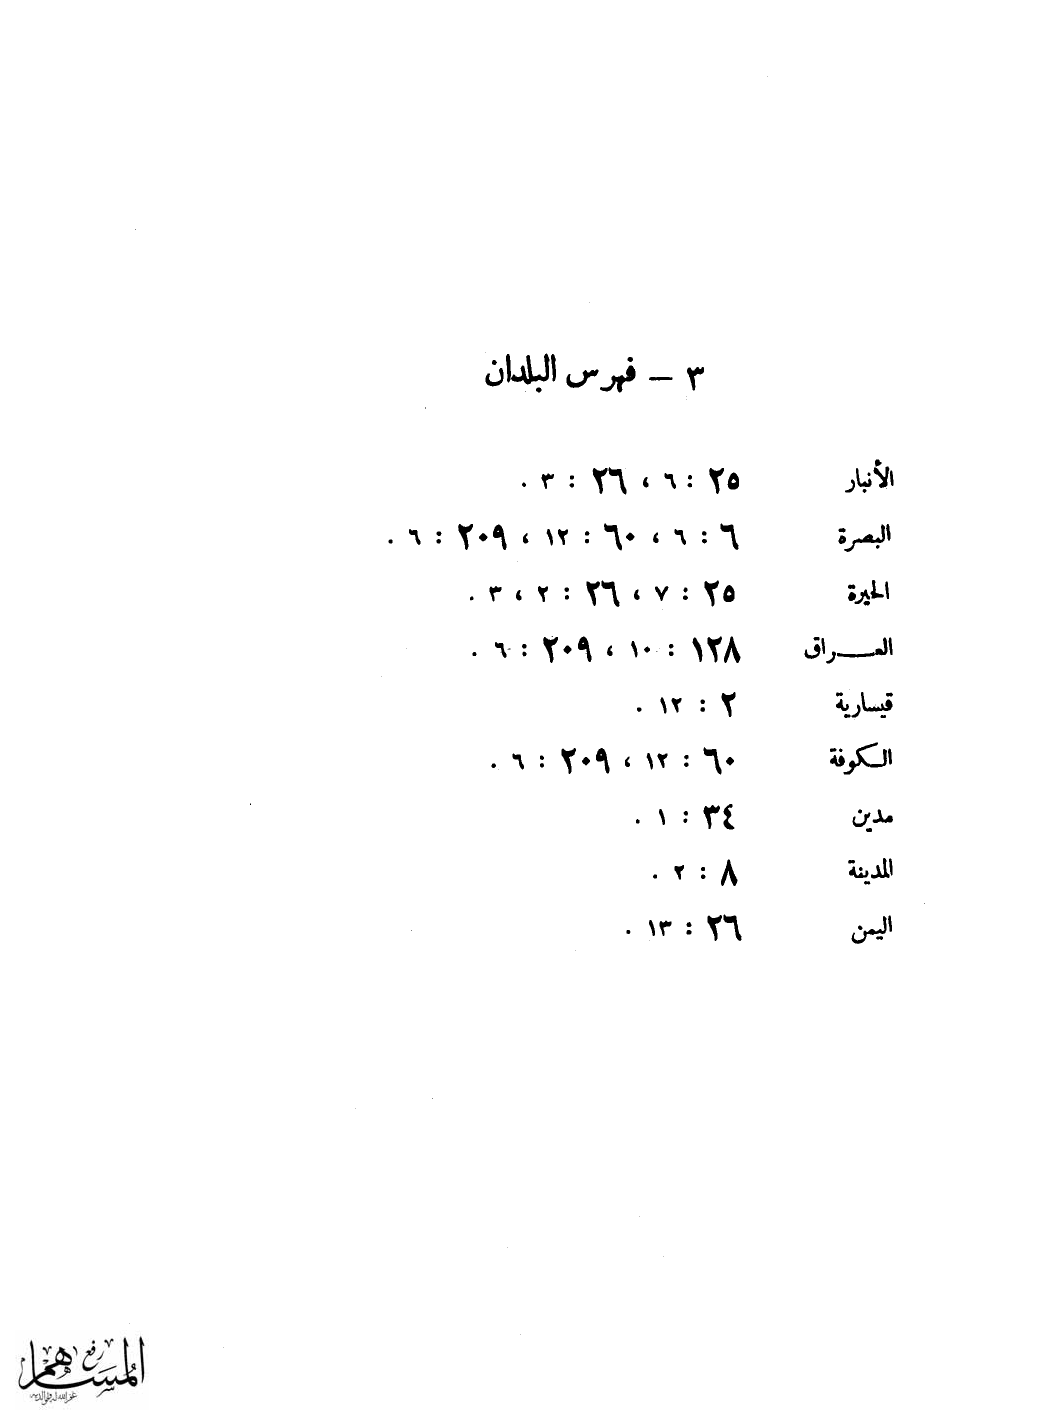 ٣ – فهرس البلدان
الأنبار ٢٥ : ٦ ، ٢٦ : ٣ .
البصرة ٦ : ٦ ، ٦٠ : ١٢ ، ٢٠٩ : ٦ .
الحيرة ٢٥ : ٧ ، ٢٦ : ٢ ، ٣ .
العـــراق ١٢٨ : ١٠ ، ٢٠٩ : ٦ .
قيسارية ٢ : ١٢ .
الكوفة ٦٠ : ١٢ ، ٢٠٩ : ٦ .
مدين ٣٤ : ١ .
المدينة ٨ : ٢ .
اليمن ٢٦ : ١٣ .
رفع
المساهم
غفر الله له ولوالديه